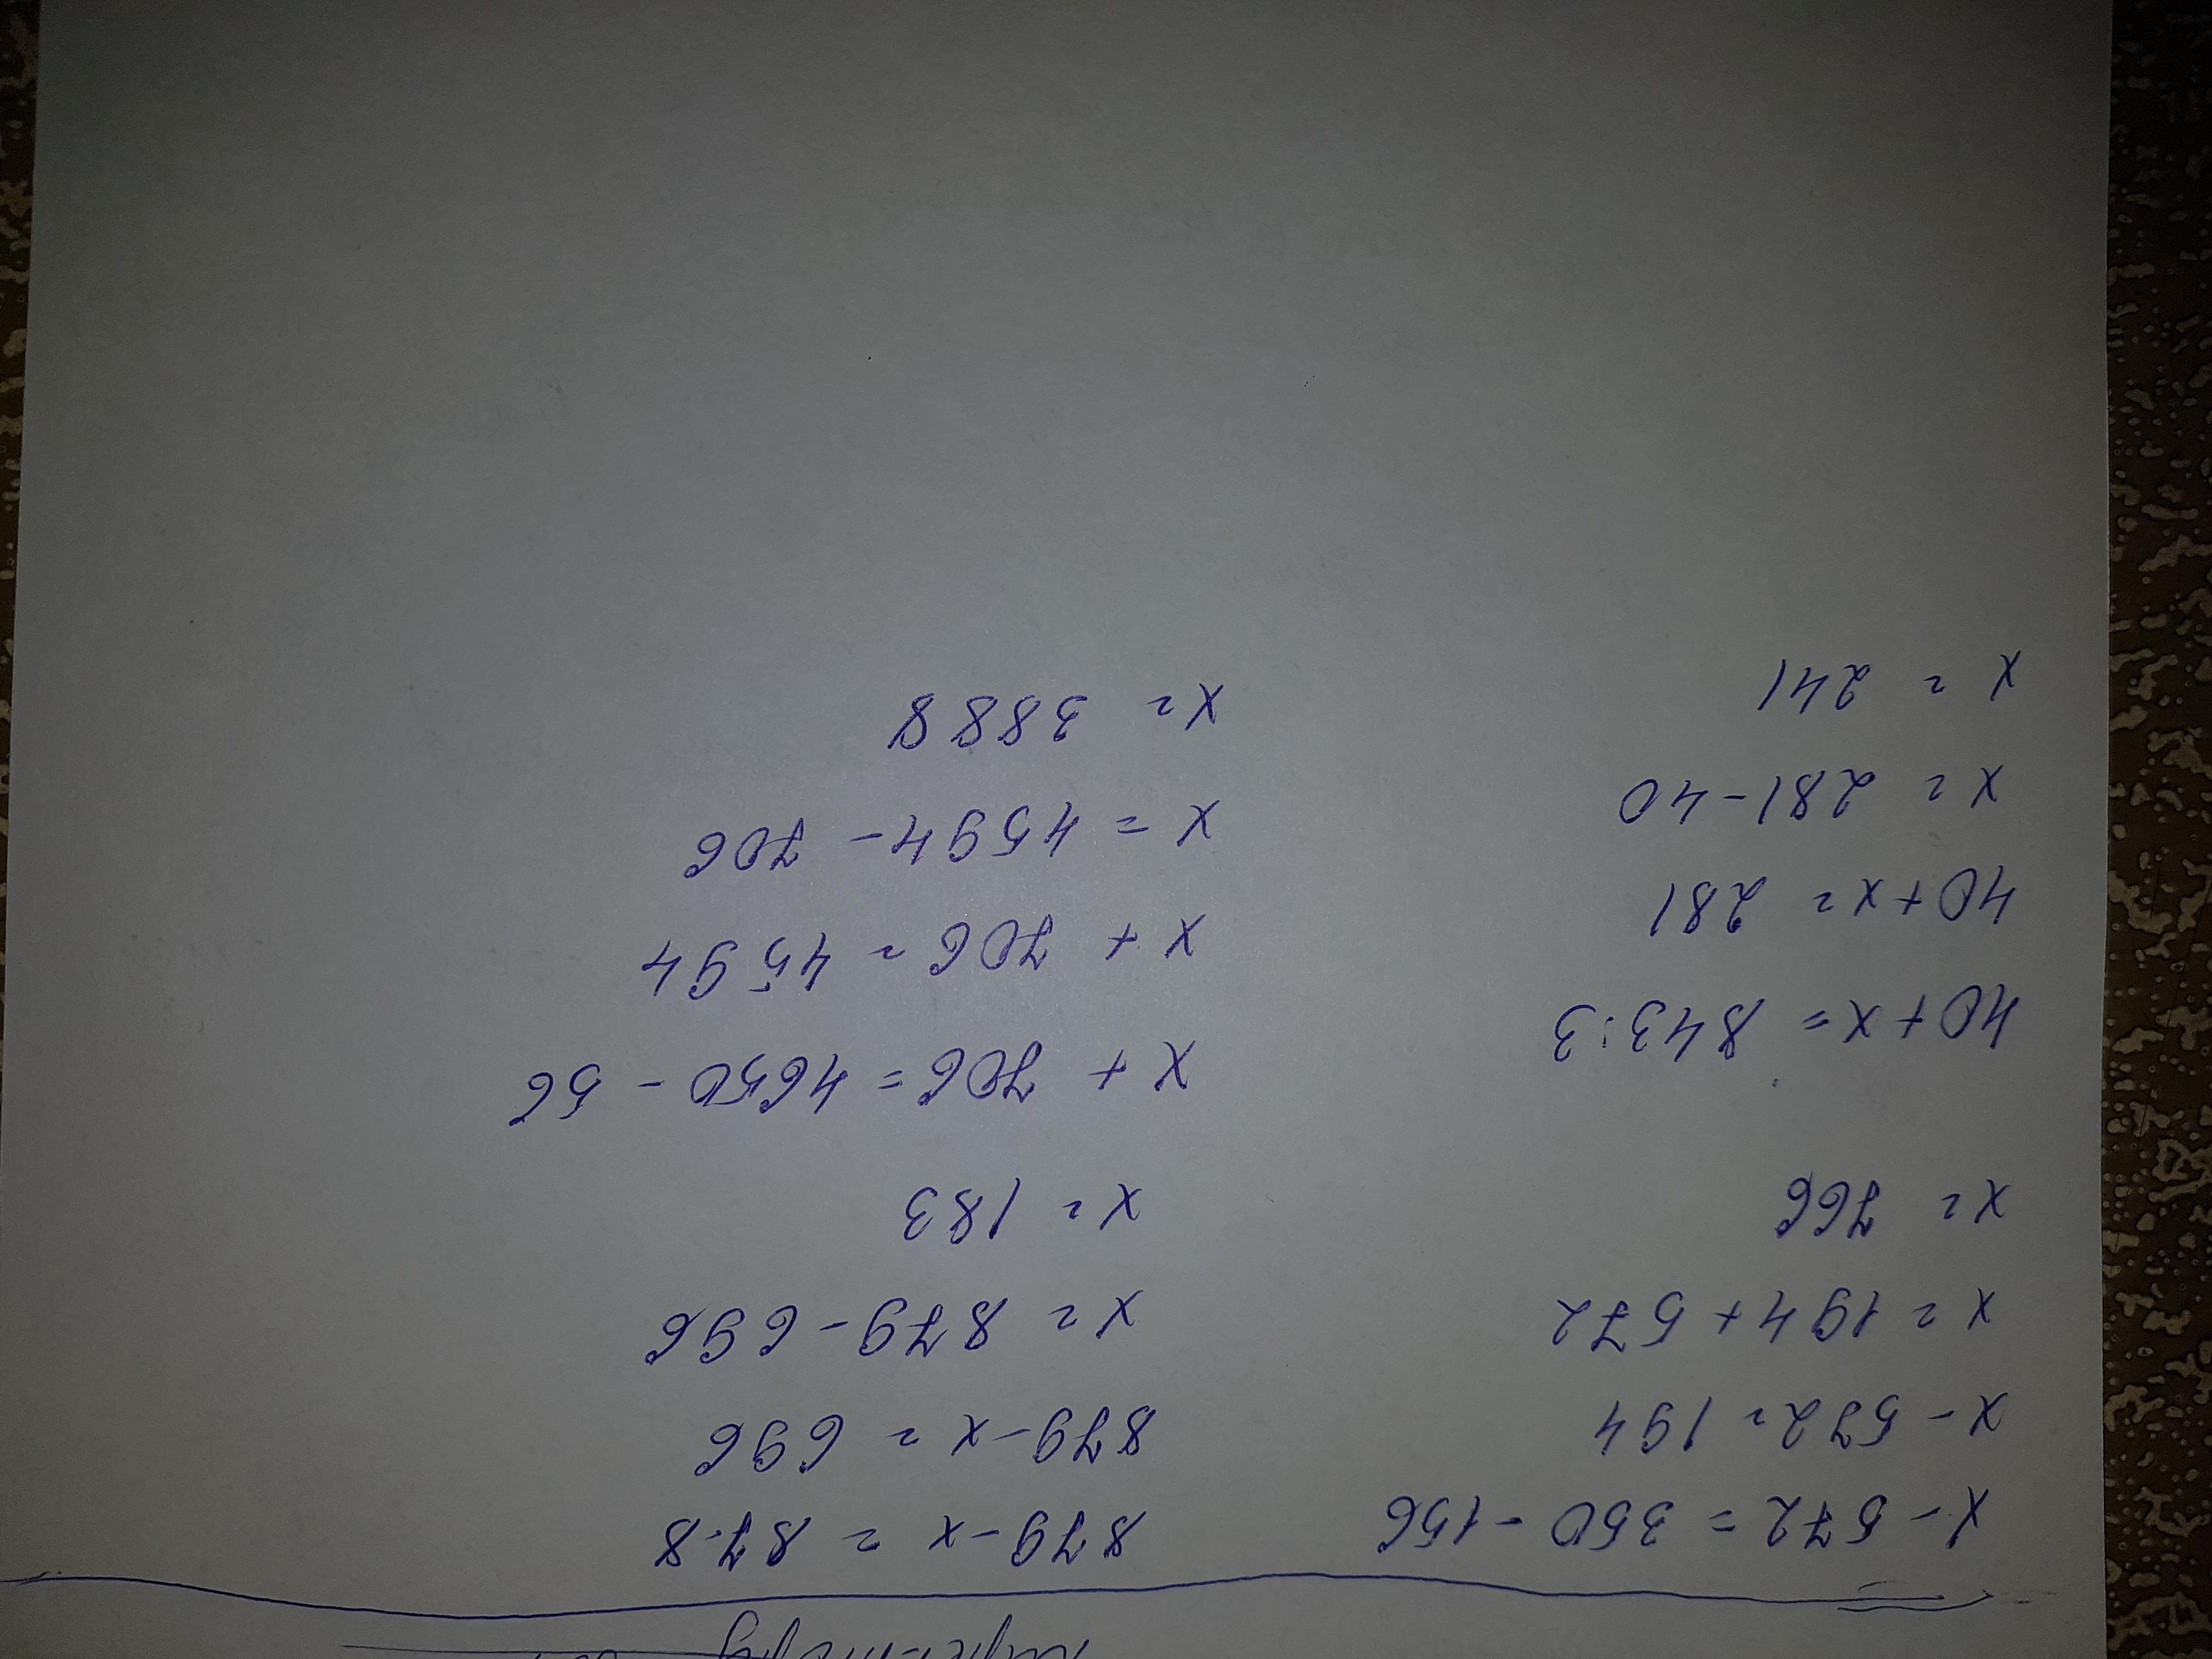 x - 572 = 350 - 156
x - 572 = 194
x = 194 + 572
x = 766
879 - x = 87·8
879 - x = 696
x = 879 - 696
x = 183
40 + x = 843:3
40 + x = 281
x = 281 - 40
x = 241
x + 706 = 4650 - 56
x + 706 = 4594
x = 4594 - 706
x = 3888